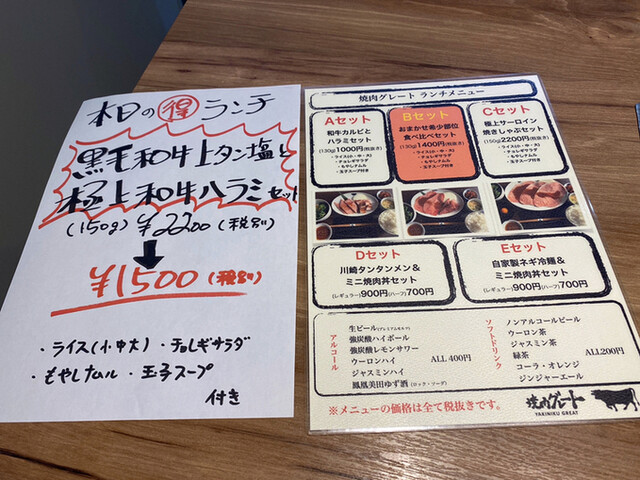 本日の得ランチ
黒毛和牛上タン塩と
極上和牛ハラミセット
(150g) ¥2200 (税別)
¥1500 (税別)
・ライス(小中大)・チョレギサラダ
・もやしナムル・玉子スープ
付き
焼肉グレート ランチメニュー
Aセット
和牛カルビと
ハラミセット
(130g)1000円(税抜き)
・ライス(小・中・大)
・チョレギサラダ
・もやしナムル
・玉子スープ付き
Bセット
おまかせ希少部位
食べ比べセット
(130g)1400円(税抜き)
・ライス(小・中・大)
・チョレギサラダ
・もやしナムル
・玉子スープ付き
Cセット
極上サーロイン
焼きしゃぶセット
(150g)2200円(税抜き)
・ライス(小・中・大)
・チョレギサラダ
・もやしナムル
・玉子スープ付き
Dセット
川崎タンタンメン＆
ミニ焼肉丼セット
(レギュラー)900円(ハーフ)700円
Eセット
自家製ネギ冷麺＆
ミニ焼肉丼セット
(レギュラー)900円(ハーフ)700円
アルコール
生ビール(プレミアムモルツ)
強炭酸ハイボール
強炭酸レモンサワー
ウーロンハイ
ジャスミンハイ
鳳凰美田ゆず酒(ロック・ソーダ)
ALL 400円
ソフトドリンク
ノンアルコールビール
ウーロン茶
ジャスミン茶
緑茶
コーラ・オレンジ
ジンジャーエール
ALL200円
※メニューの価格は全て税抜きです。
焼肉グレート
YAKINIKU GREAT